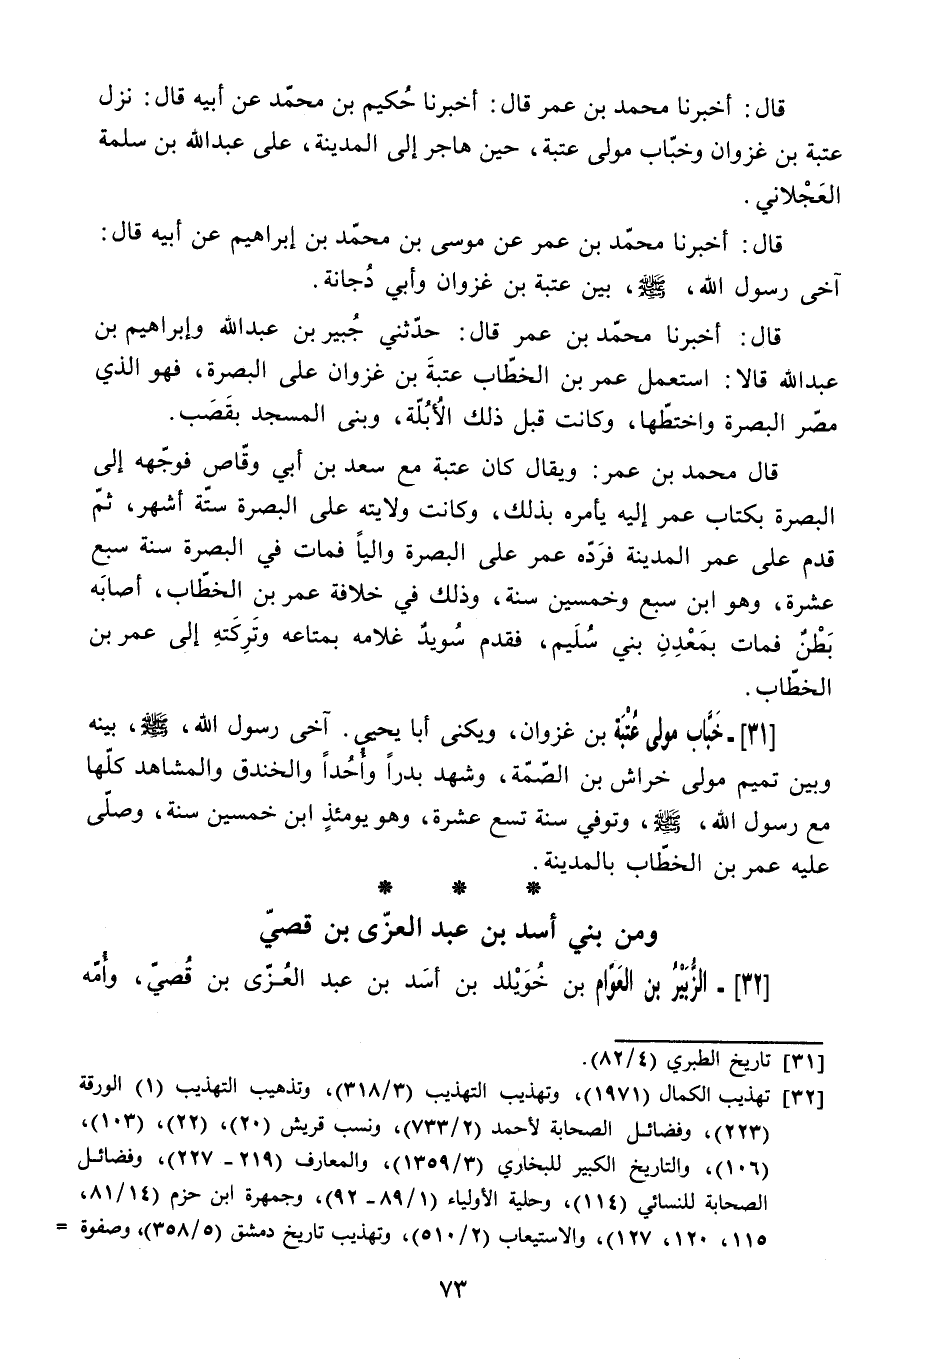 قال: أخبرنا محمد بن عمر قال: أخبرنا حُكيم بن محمّد عن أبيه قال: نزل
عتبة بن غزوان وخبّاب مولى عتبة، حين هاجر إلى المدينة، على عبدالله بن سلمة
العَجْلاني.
قال: أخبرنا محمّد بن عمر عن موسى بن محمّد بن إبراهيم عن أبيه قال:
آخى رسول الله، ﷺ، بين عتبة بن غزوان وأبي دُجانة.
قال: أخبرنا محمّد بن عمر قال: حدّثني جُبير بن عبدالله وإبراهيم بن
عبدالله قالا: استعمل عمر بن الخطّاب عتبةَ بن غزوان على البصرة، فهو الذي
مصّر البصرة واختطّها، وكانت قبل ذلك الأُبُلّة، وبنى المسجد بقَصَب.
قال محمد بن عمر: ويقال كان عتبة مع سعد بن أبي وقّاص فوجّهه إلى
البصرة بكتاب عمر إليه يأمره بذلك، وكانت ولايته على البصرة ستّة أشهر، ثمّ
قدم على عمر المدينة فرَدّه عمر على البصرة والياً فمات في البصرة سنة سبع
عشرة، وهو ابن سبع وخمسين سنة، وذلك في خلافة عمر بن الخطّاب، أصابَه
بَطْنٌ فمات بمَعْدِنِ بني سُلَيم، فقدم سُويدٌ غلامه بمتاعه وتَرِكَتهِ إلى عمر بن
الخطّاب.
[٣١]ـ خَبَّاب مولى عُتْبَة بن غزوان، ويكنى أبا يحيى. آخى رسول الله، ﷺ، بينه
وبين تميم مولى خراش بن الصّمّة، وشهد بدراً وأُحُداً والخندق والمشاهد كلّها
مع رسول الله، ﷺ، وتوفي سنة تسع عشرة، وهو يومئذٍ ابن خمسين سنة، وصلّى
عليه عمر بن الخطّاب بالمدينة.
* * *
ومن بني أسد بن عبد العزّى بن قصيّ
[٣٢] ـ الزُّبَيْرُ بن العَوَّام بن خُوَيْلد بن أسَد بن عبد العُـزّى بن قُصيّ، وأُمّه
[٣١] تاريخ الطبري (٨٢/٤).
[٣٢] تهذيب الكمال (١٩٧١)، وتهذيب التهذيب (٣١٨/٣)، وتذهيب التهذيب (١) الورقة
(٢٢٣)، وفضائـل الصحابة لأحمد (٧٣٣/٢)، ونسب قريش (٢٠)، (٢٢)، (١٠٣)،
(١٠٦)، والتاريخ الكبير للبخاري (١٣٥٩/٣)، والمعارف (٢١٩ـ ٢٢٧)، وفضائـل
الصحابة للنسائي (١١٤)، وحلية الأولياء (٨٩/١ـ ٩٢)، وجمهرة ابن حزم (٨١/١٤،
١١٥، ١٢٠، ١٢٧)، والاستيعاب (٥١٠/٢)، وتهذيب تاريخ دمشق (٣٥٨/٥)، وصفوة =
٧٣